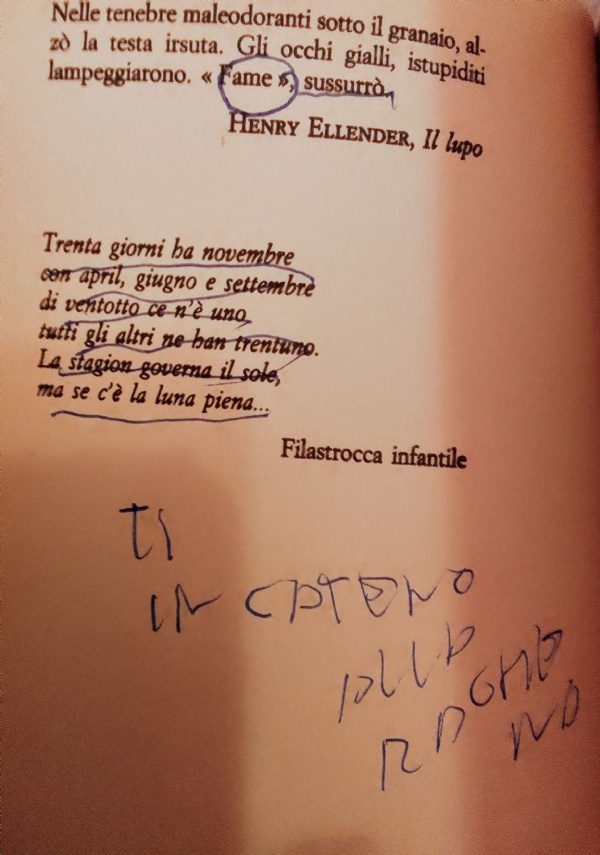 Nelle tenebre maleodoranti sotto il granaio, al-
zò la testa irsuta. Gli occhi gialli, istupiditi
lampeggiarono. « Fame », sussurrò.
HENRY ELLENDER, Il lupo
Trenta giorni ha novembre
con april, giugno e settembre
di ventotto ce n'è uno
tutti gli altri ne han trentuno.
La stagion governa il sole,
ma se c'è la luna piena...
Filastrocca infantile
TI
INCATENO
ALLA
RAGNA
NA